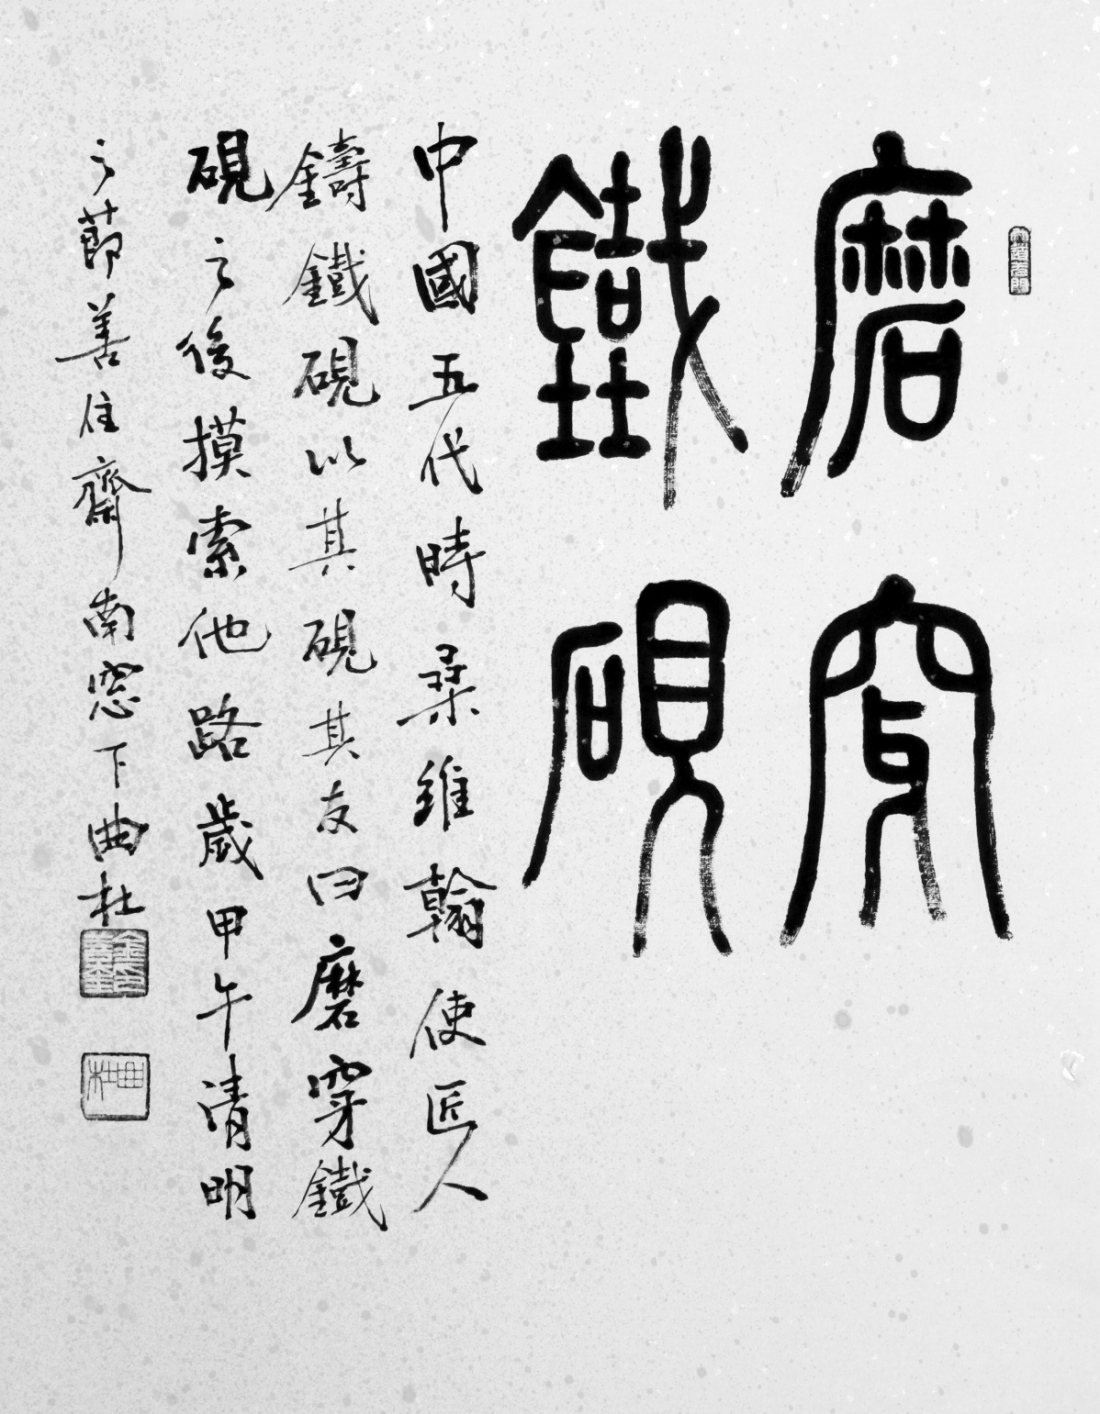 磨穿
鐵硯
中國五代時桑維翰使匠人
鑄鐵硯以其硯其友曰磨穿鐵
硯之後摸索他路歲甲午清明
之節善住齋南窓下曲杜